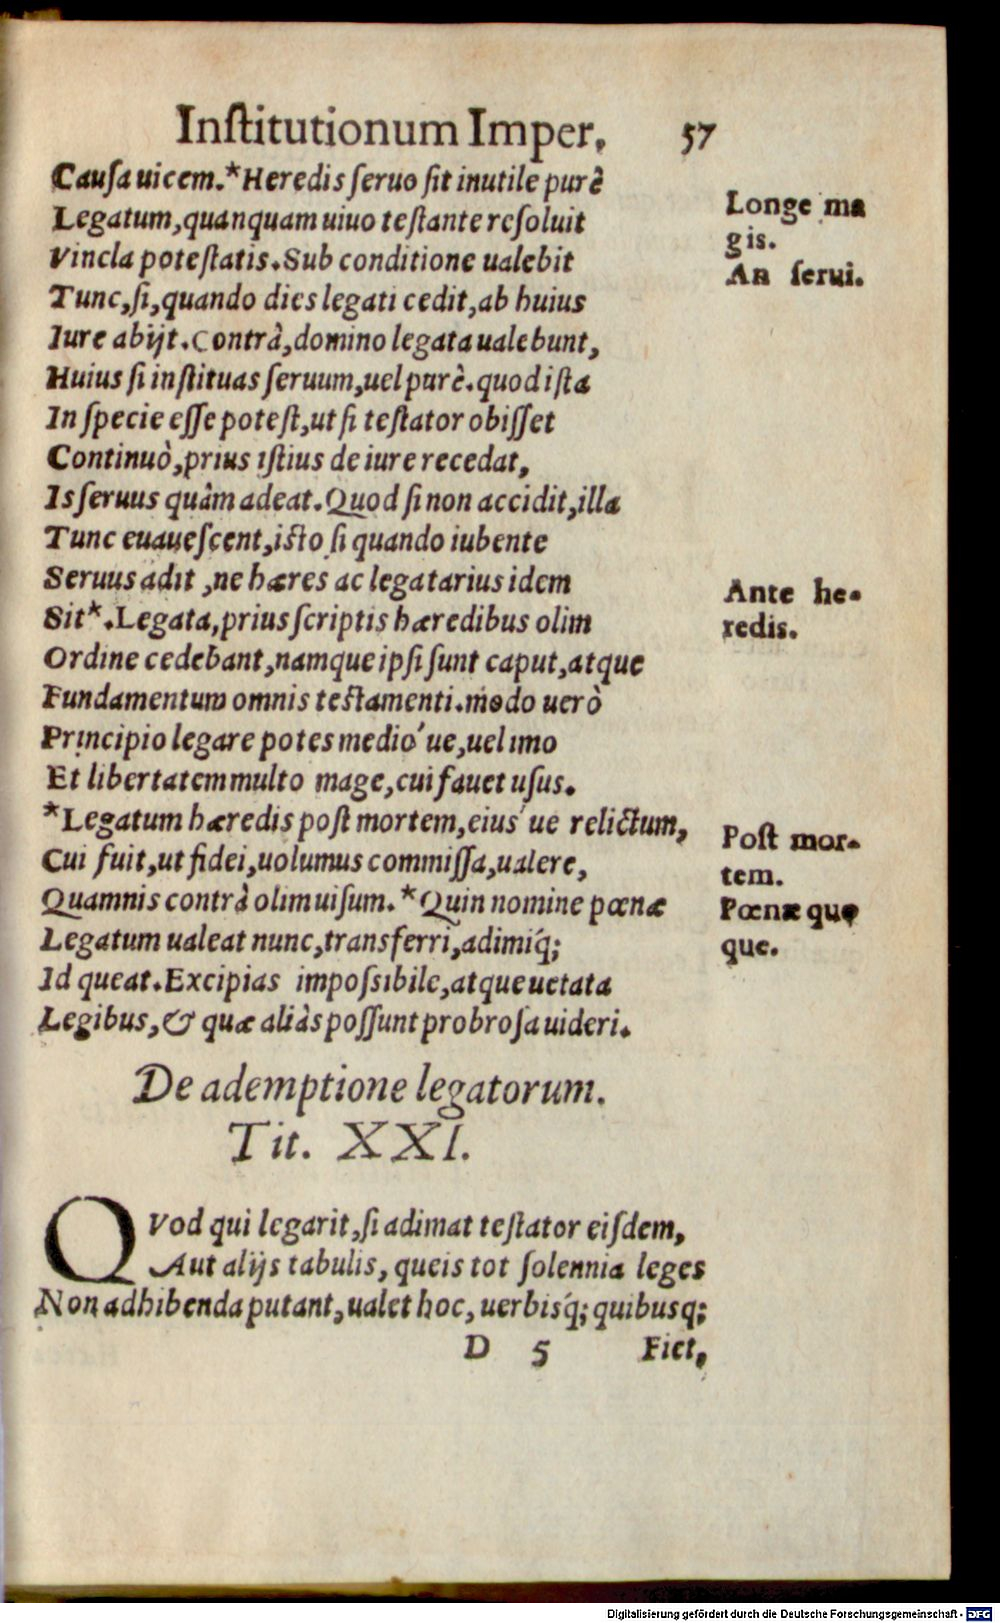 Inſtitutionum Imper, 57
Cauſa uicem.*Heredis ſeruo ſit inutile purè
Legatum,quanquam uiuo teſtante reſoluit
Vincla poteſtatis.Sub conditione ualebit
Tunc,ſi,quando dies legati cedit,ab huius
Iure abijt.Contrà,domino legata ualebunt,
Huius ſi inſtituas ſeruum,uel purè.quod iſta
In ſpecie eſſe poteſt,ut ſi teſtator obiſſet
Continuò,prius iſtius de iure recedat,
Is ſeruus quàm adeat.Quod ſi non accidit,illa
Tunc euaueſcent,iſto ſi quando iubente
Seruus adit ,ne hæres ac legatarius idem
Sit*.Legata,prius ſcriptis hæredibus olim
Ordine cedebant,namque ipſi ſunt caput,atque
Fundamentum omnis teſtamenti.modo uerò
Principio legare potes medio´ue,uel imo
Et libertatem multo mage,cui fauet uſus.
*Legatum hæredis poſt mortem,eius´ue relictum,
Cui fuit,ut fidei,uolumus commiſſa,ualere,
Quamnis contrà olim uiſum.*Quin nomine pœnæ
Legatum ualeat nunc,transferri,adimiq́;
Id queat.Excipias impoſsibile,atque uetata
Legibus,& quæ aliàs poſſunt probroſa uideri.
Longe ma
gis.
An ſerui.
Ante he-
redis.
Poſt mor-
tem.
Pœnæ quo
que.
De ademptione legatorum.
Tit. XXI.
QVod qui legarit,ſi adimat teſtator eiſdem,
Aut alijs tabulis, queis tot ſolennia leges
Non adhibenda putant,ualet hoc, uerbisq́; quibusq;
D 5 Fiet,
Digitalisierung gefördert durch die Deutsche Forschungsgemeinschaft - DFG